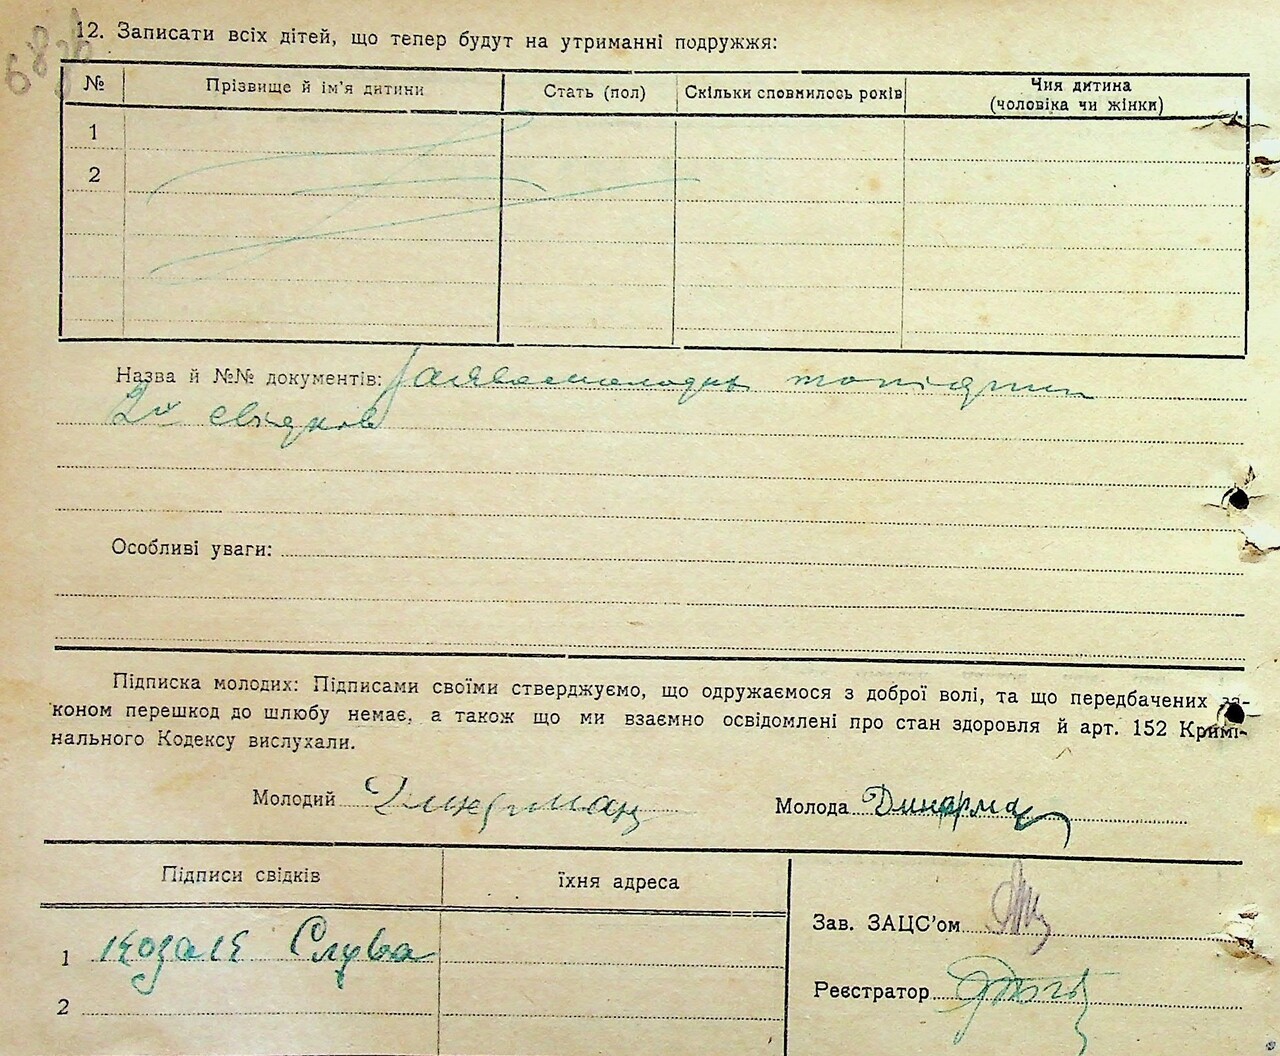 12. Записати всіх дітей, що тепер будут на утриманні подружжя:
№ Прізвище й ім'я дитини Стать (пол) Скільки сповнилось років Чия дитина
(чоловіка чи жінки)
1
2
Назва й №№ документів:
2х свідков
Особливі уваги:
Підписка молодих: Підписами своїми стверджуємо, що одружаємося з доброї волі, та що передбачених за-
коном перешкод до шлюбу немає, а також що ми взаємно освідомлені про стан здоровля й арт. 152 Кримі-
нального Кодексу вислухали.
Молодий Молода
Підписи свідків їхня адреса
Зав. ЗАЦС'ом
1 Козак
Реєстратор
2